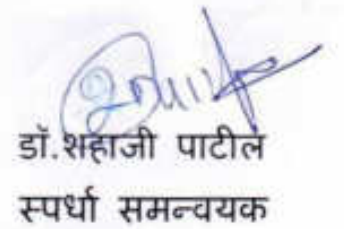 डॉ.शहाजी पाटील
स्पर्धा समन्वयक